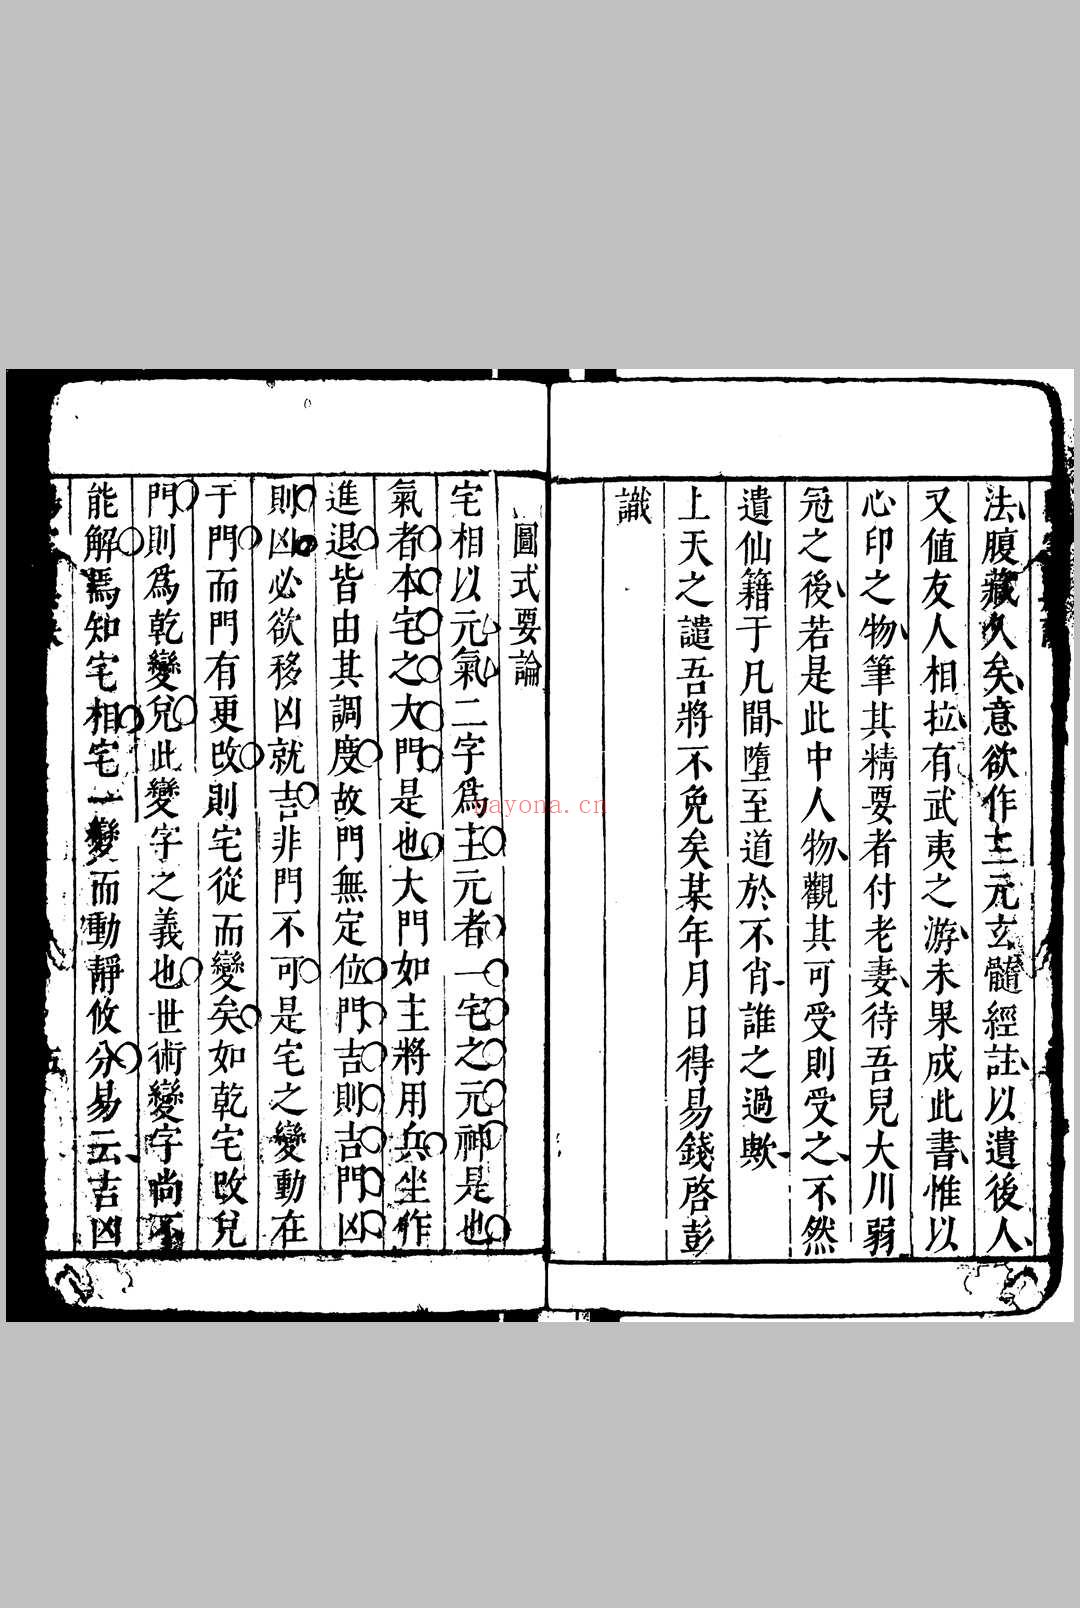 法腹藏久矣意欲作三元玄髓經註以遺後人
又値友人相拉有武夷之游未果成此書惟以
心印之物筆其精要者付老妻待吾兒大川弱
冠之後若是此中人物觀其可受則受之不然
遺仙籍于凡間墮至道於不肖誰之過歟
上天之譴吾將不免矣某年月日得易錢啓彭
識
圖式要論
宅相以元氣二字爲主元者一宅之元神是也
氣者本宅之大門是也大門如主將用兵坐作
進退皆由其調度故門無定位門吉則吉門凶
則凶必欲移凶就吉非門不可是宅之變動在
于門而門有更改則宅從而變矣如乾宅改兌
門則爲乾變兌此變字之義也世術變字尚不
能解焉知宅相宅一變而動靜攸分易云吉凶
五
nayona.cn